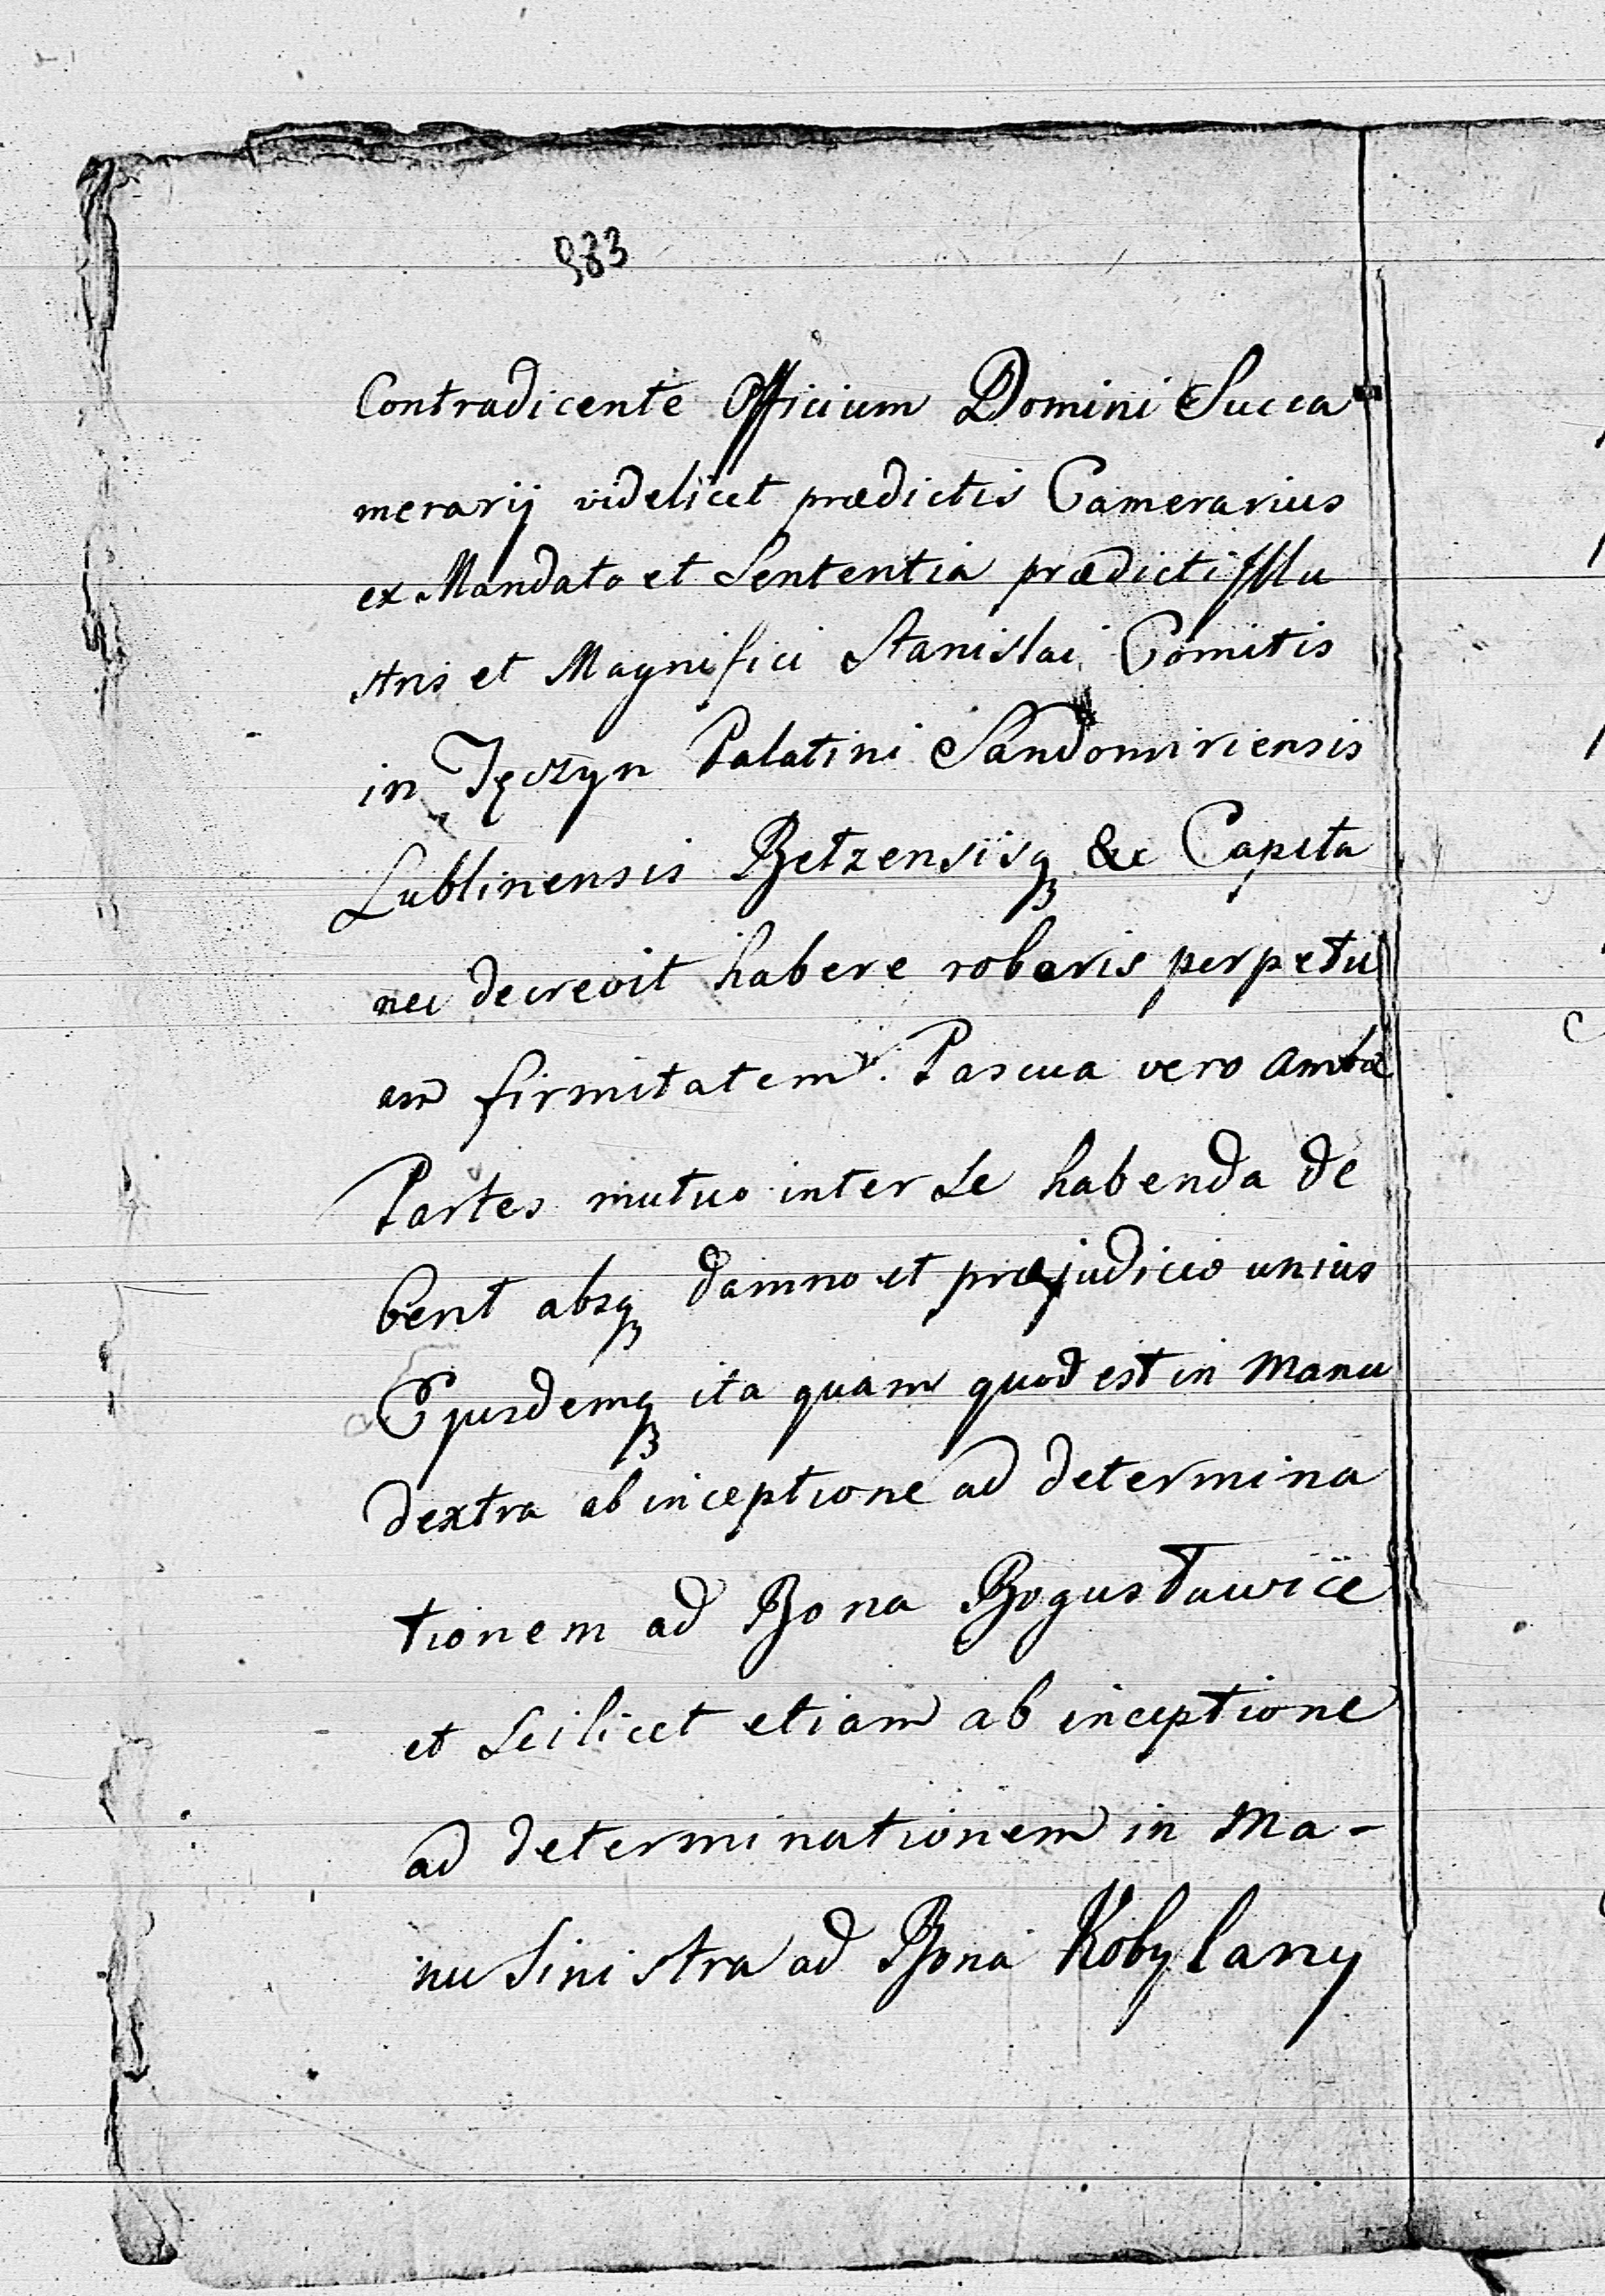 983
Contradicente Officium Domini Succa
merarij videlicet prædictis Camerarius
ex Mandato et Sententia prædicti Illu
stris et Magnifici Stanislai Comitis
in Tęczyn Palatini Sandomiriensis
Lublinensis Betzensisqꝫ &c Capita
nei decrevit habere roboris perpetu
am firmitatem. Pascua vero Ambæ
Partes mutuo inter Se habenda de
bent absqꝫ damno et præjudicio unius
Ejusdemqꝫ ita quam quod est in Manu
dextra ab inceptione ad determina
tionem ad Bona Bogusławice
et Scilicet etiam ab inceptione
ad determinationem in Ma-
nu Sinistra ad Bona Kobylany